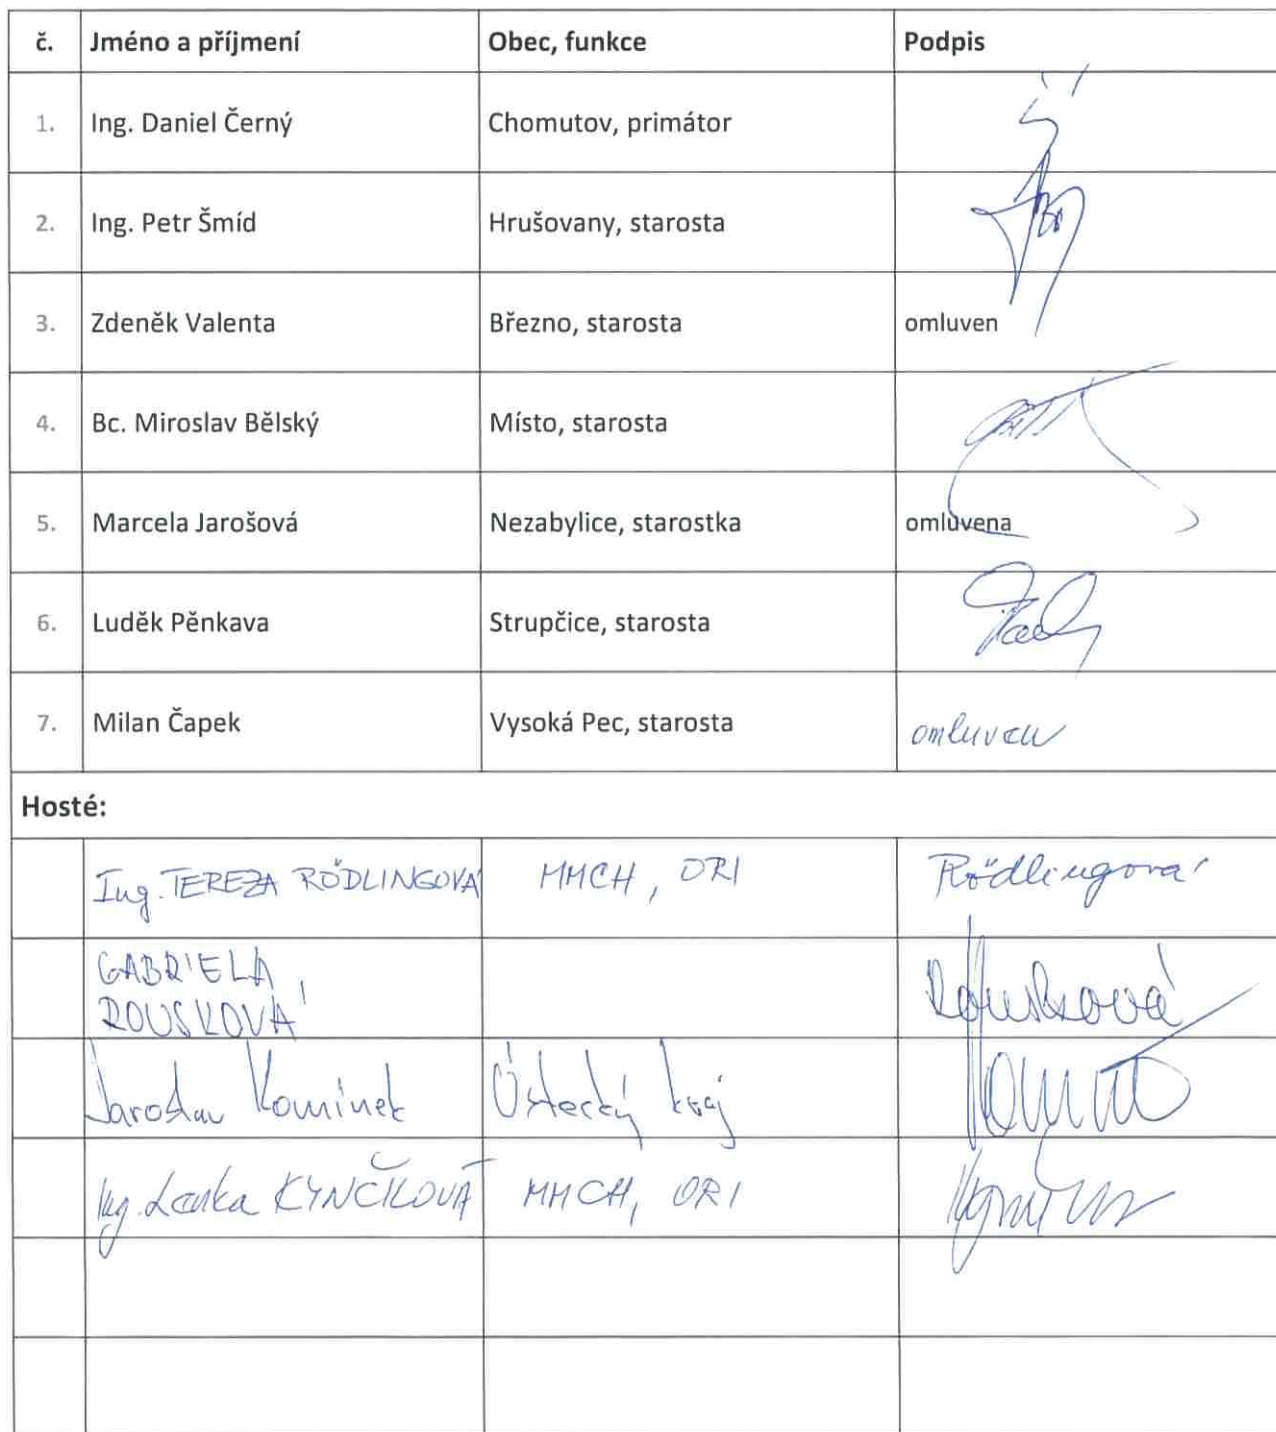 č. Jméno a příjmení Obec, funkce Podpis
1. Ing. Daniel Černý Chomutov, primátor
2. Ing. Petr Šmíd Hrušovany, starosta
3. Zdeněk Valenta Březno, starosta omluven
4. Bc. Miroslav Bělský Místo, starosta
5. Marcela Jarošová Nezabylice, starostka omluvena
6. Luděk Pěnkava Strupčice, starosta
7. Milan Čapek Vysoká Pec, starosta omluven
Hosté:
Ing. TEREZA RÖDLINGOVÁ MMCH, ORI Rödlingová
GABRIELA
ROUSKOVÁ Rousková
Jaroslav Komínek Ústecký kraj
Ing. Lenka KYNČILOVÁ MMCH, ORI